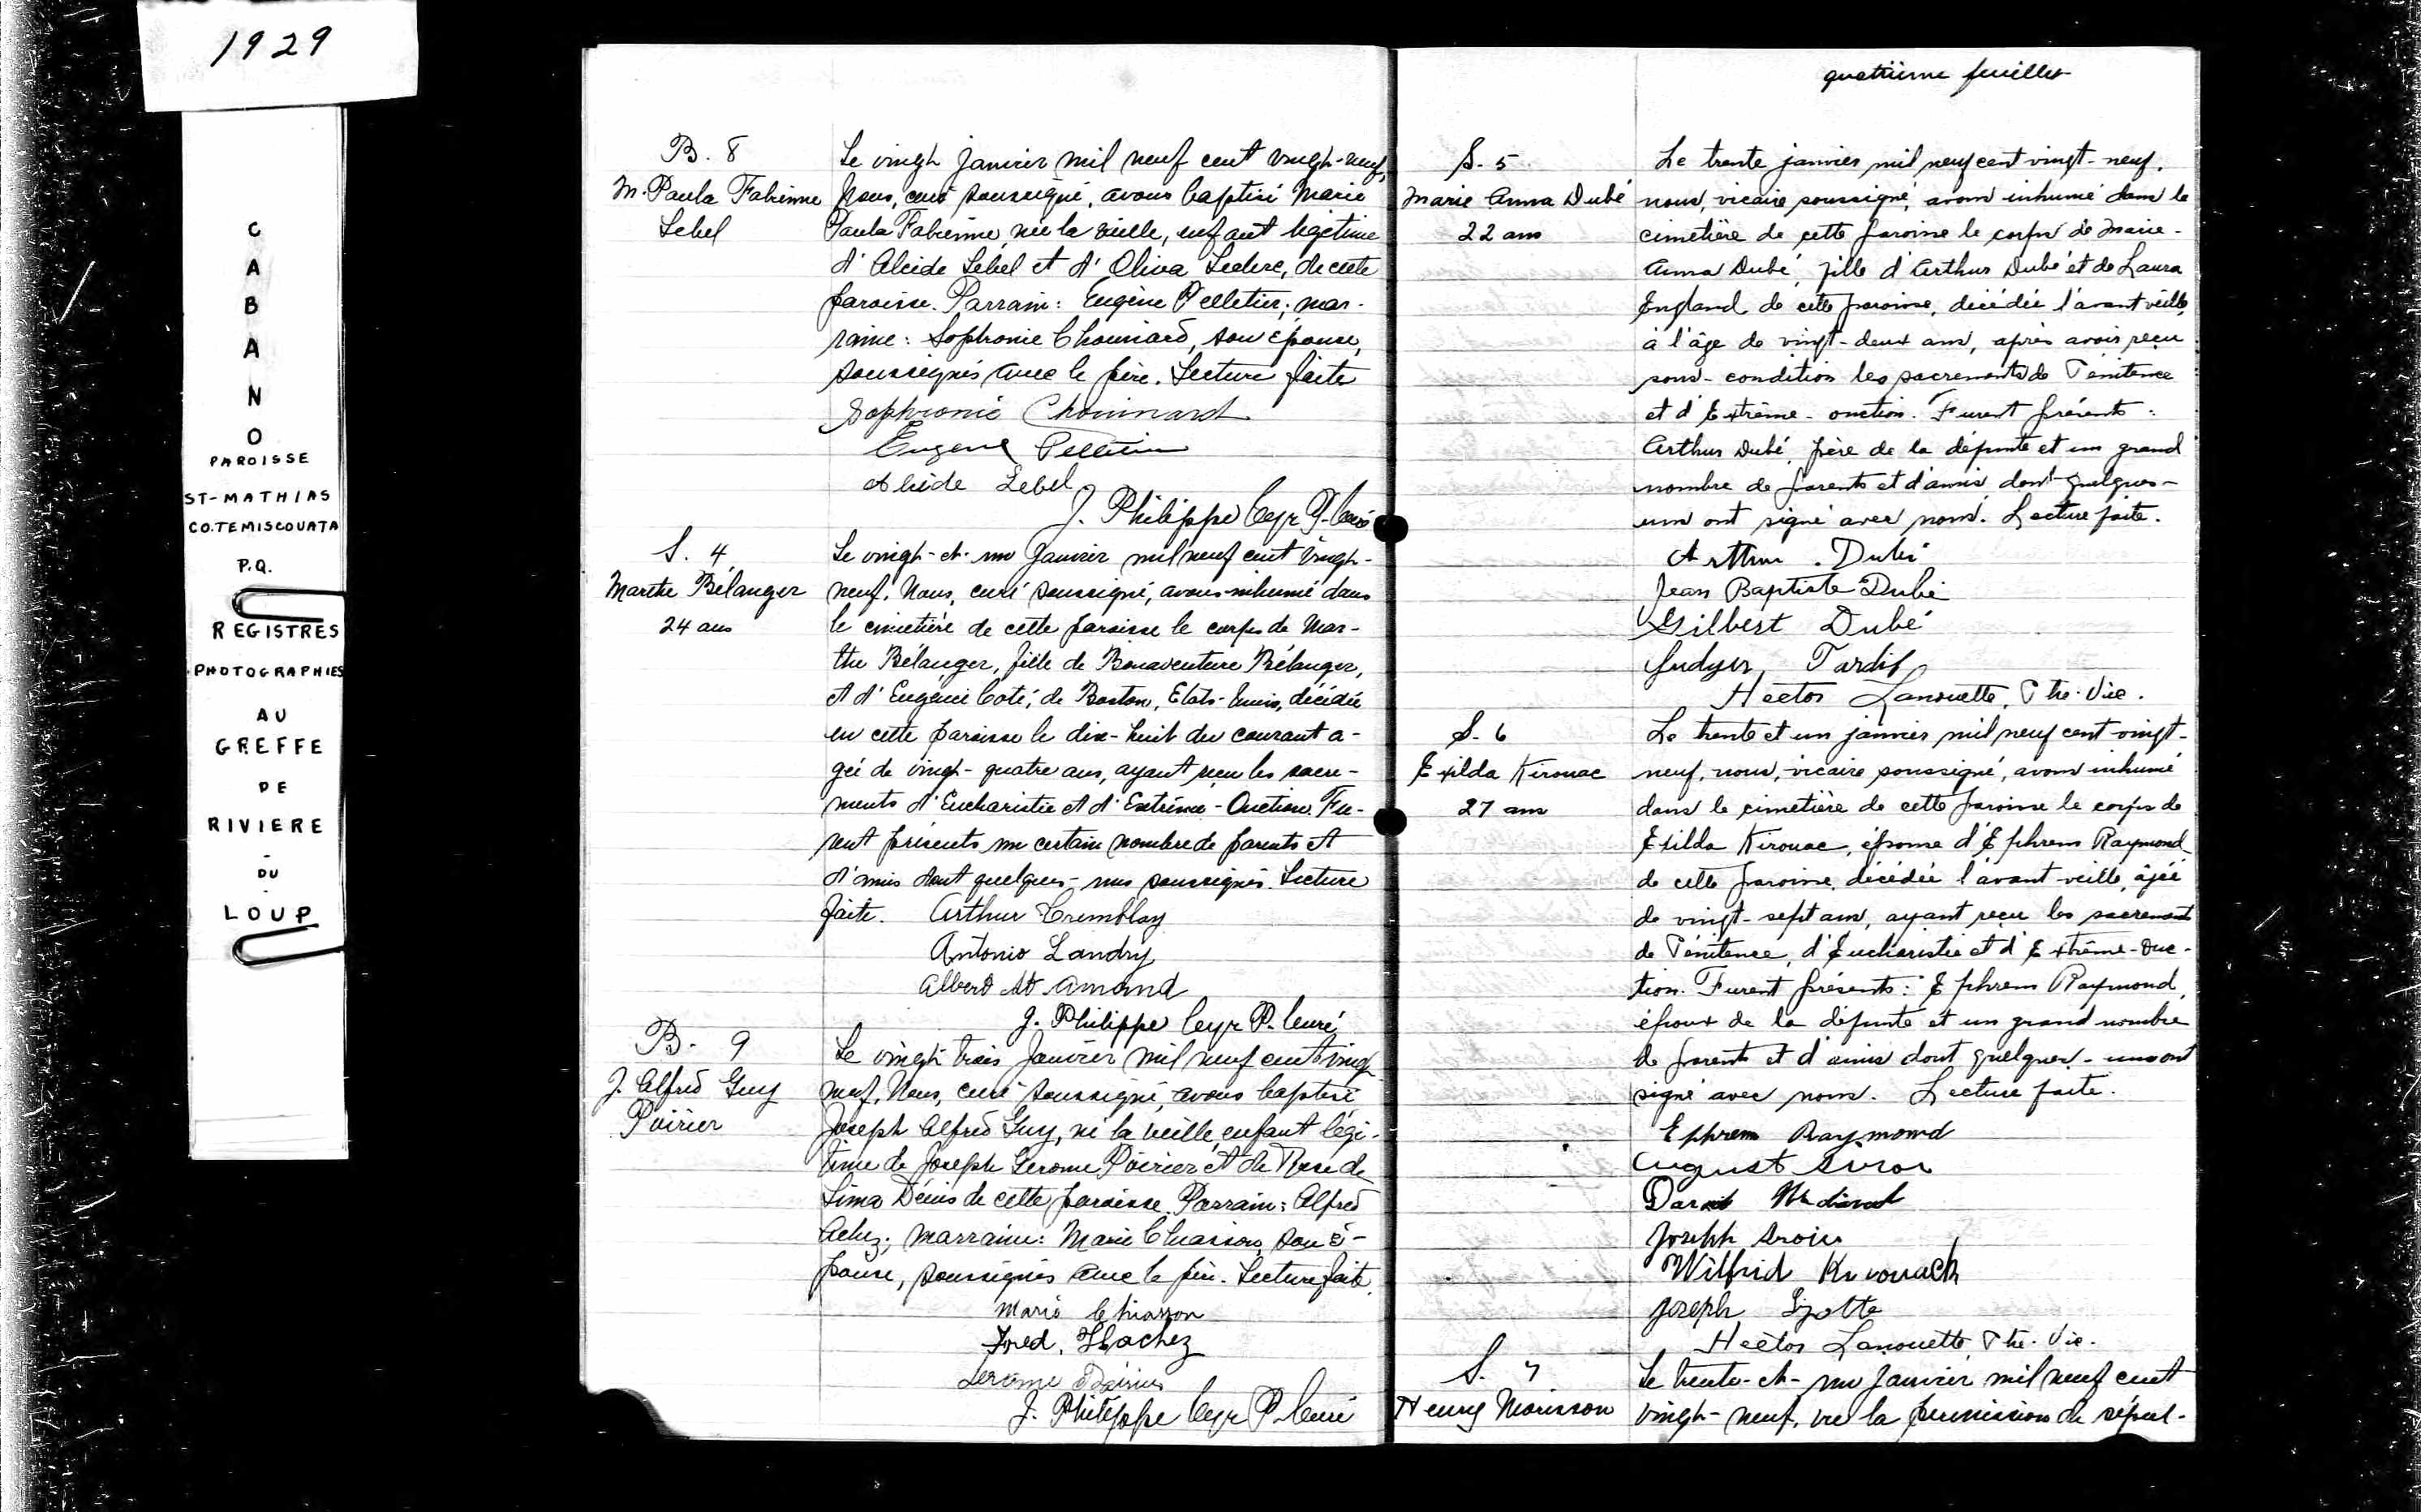 1929
CABANO
PAROISSE
ST-MATHIAS
CO.TEMISCOUATA
P.Q.
REGISTRES
PHOTOGRAPHIES
AU
GREFFE
DE
RIVIERE
-
DU
-
LOUP
B. 8
M. Paula Fabienne
Lebel
Le vingt Janvier mil neuf cent vingt-neuf,
Nous, curé soussigné, avons baptisé Marie
Paula Fabienne, née la veille, enfant légitime
d'Alcide Lebel et d'Oliva Leclerc, de cette
paroisse. Parrain: Eugène Pelletier; mar-
raine: Sophronie Chouinard, son épouse,
soussignés avec le père. Lecture faite
Sophronie Chouinard
Eugene Pelletier
Alcide Lebel
J. Philippe Cyr P. Curé
S. 4
Marthe Bélanger
24 ans
Le vingt-et-un Janvier mil neuf cent vingt-
neuf. Nous, curé soussigné, avons inhumé dans
le cimetière de cette paroisse le corps de Mar-
the Bélanger, fille de Bonaventure Bélanger,
et d'Eugénie Coté, de Boston, Etats-Unis, décédée
en cette paroisse le dix-huit du courant a-
gée de vingt-quatre ans, ayant reçu les sacre-
ments d'Eucharistie et d'Extrême-Onction. Fu-
rent présents un certain nombre de parents et
d'amis dont quelques-uns soussignés. Lecture
faite. Arthur Tremblay
Antonio Landry
Albert St Amand
J. Philippe Cyr P. Curé
B. 9
J. Alfred Guy
Poirier
Le vingt trois Janvier mil neuf cent vingt
neuf. Nous, curé soussigné, avons baptisé
Joseph Alfred Guy, né la veille, enfant légi-
time de Joseph Gerome Poirier et de Rose de
Lima Denis de cette paroisse. Parrain: Alfred
Achez; marraine: Marie Chiasson, son é-
pouse, soussignés avec le père. Lecture faite.
Marie Chiasson
Fred. Hachez
Jerome Poirier
J. Philippe Cyr P. Curé
quatrième feuillet
S. 5
Marie Anna Dubé
22 ans
Le trente janvier mil neuf cent vingt-neuf.
nous, vicaire soussigné, avons inhumé dans le
cimetière de cette paroisse le corps de Marie-
Anna Dubé, fille d'Arthur Dubé et de Laura
England de cette paroisse, décédée l'avant veille,
à l'âge de vingt-deux ans, après avoir reçu
sous-condition les sacrements de Pénitence
et d'Extrême-onction. Furent présents:
Arthur Dubé, père de la défunte et un grand
nombre de parents et d'amis dont quelques-
uns ont signé avec nous. Lecture faite.
Arthur. Dubé
Jean Baptiste Dubé
Gilbert Dubé
Tardif
Hector Lanouette, Ptre. Vic.
S. 6
Exilda Kirouac
27 ans
Le trente et un janvier mil neuf cent vingt-
neuf, nous, vicaire soussigné, avons inhumé
dans le cimetière de cette paroisse le corps de
Exilda Kirouac, épouse d'Ephrem Raymond
de cette paroisse, décédée l'avant veille, âgée
de vingt-sept ans, ayant reçu les sacrements
de Pénitence, d'Eucharistie et d'Extrême-Onc-
tion. Furent présents: Ephrem Raymond,
époux de la défunte et un grand nombre
de parents et d'amis dont quelques-uns ont
signé avec nous. Lecture faite.
Ephrem Raymond
August Sirois
Joseph Sirois
Wilfrid Kirouack
Joseph Lizotte
Hector Lanouette, Ptre. Vic.
S. 7
Henry Morisson
Le trente-et-un Janvier mil neuf cent
vingt-neuf, vu la permission de sépul-